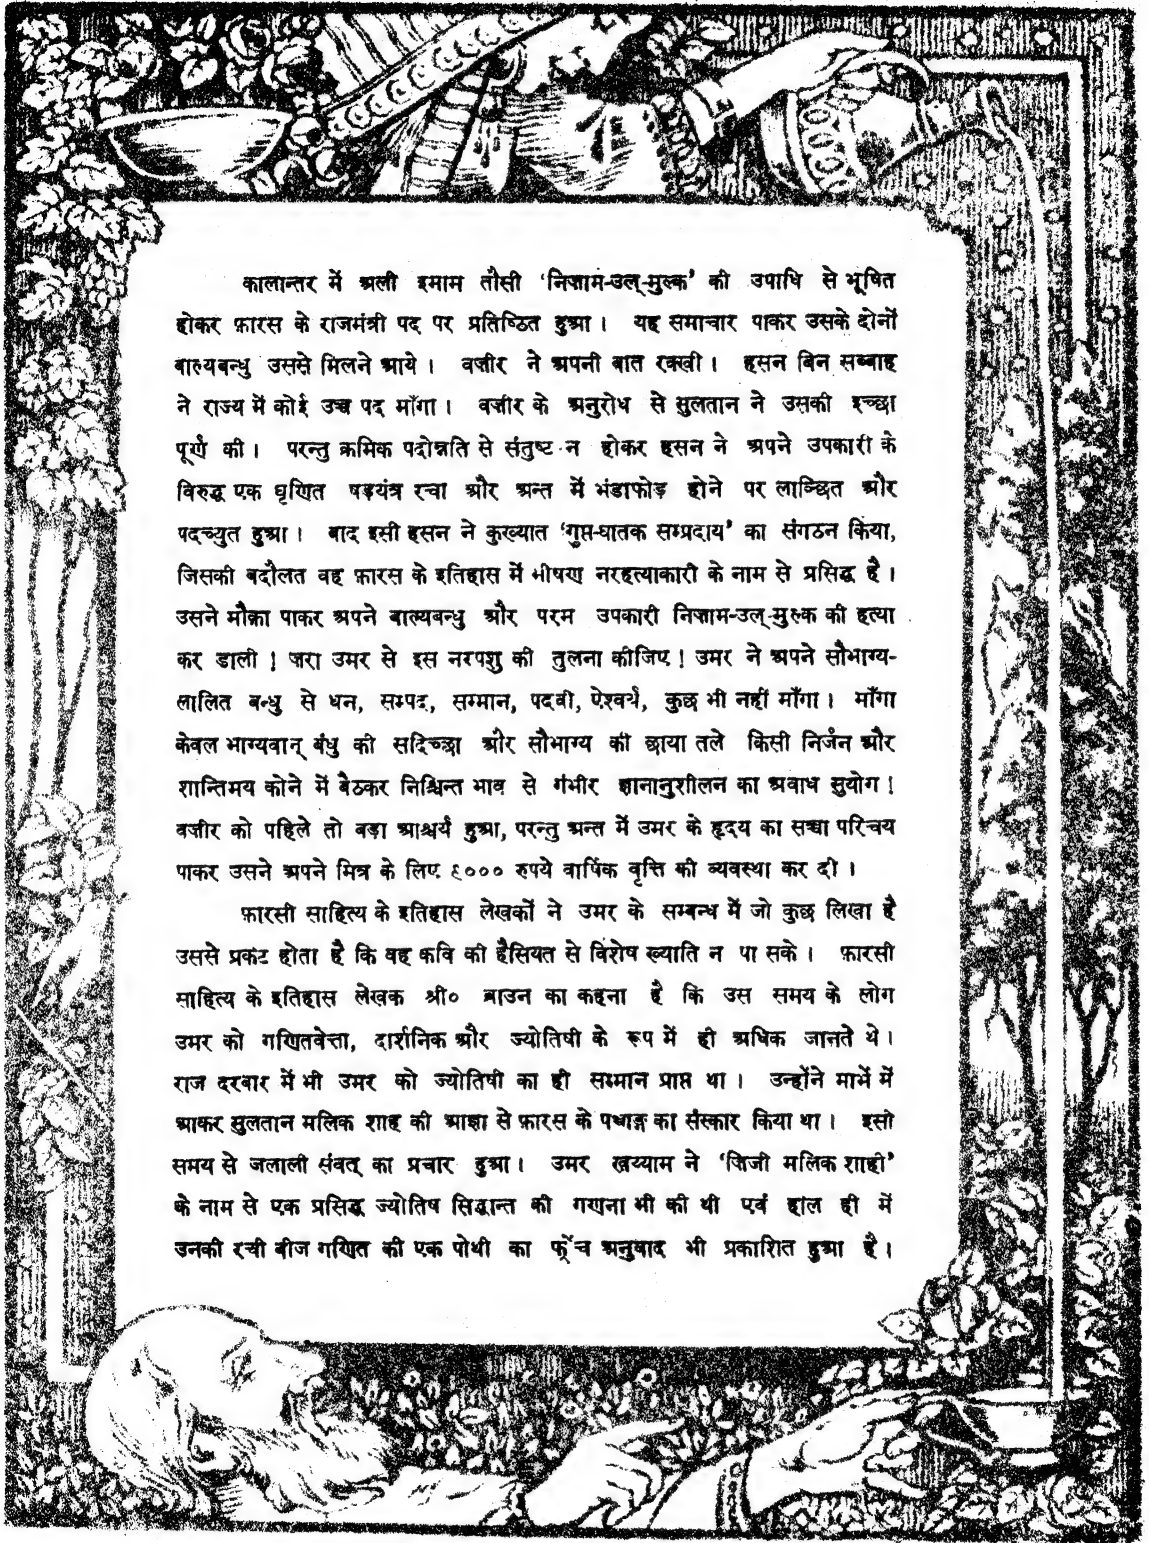 कालान्तर में अली इमाम तौसी ‘निज़ाम-उल्-मुल्क’ की उपाधि से भूषित
होकर फ़ारस के राजमंत्री पद पर प्रतिष्ठित हुआ। यह समाचार पाकर उसके दोनों
बाल्यबन्धु उससे मिलने आये। वज़ीर ने अपनी बात रक्खी। हसन बिन सब्बाह
ने राज्य में कोई उच्च पद माँगा। वज़ीर के अनुरोध से सुलतान ने उसकी इच्छा
पूर्ण की। परन्तु क्रमिक पदोन्नति से संतुष्ट न होकर हसन ने अपने उपकारी के
विरुद्ध एक घृणित षड़यंत्र रचा और अन्त में भंडाफोड़ होने पर लाञ्छित और
पदच्युत हुआ। बाद इसी हसन ने कुख्यात ‘गुप्त-घातक सम्प्रदाय’ का संगठन किया,
जिसकी बदौलत वह फ़ारस के इतिहास में भीषण नरहत्याकारी के नाम से प्रसिद्ध है।
उसने मौक़ा पाकर अपने बाल्यबन्धु और परम उपकारी निज़ाम-उल्-मुल्क की हत्या
कर डाली! ज़रा उमर से इस नरपशु की तुलना कीजिए! उमर ने अपने सौभाग्य-
लालित बन्धु से धन, सम्पद, सम्मान, पदवी, ऐश्वर्य, कुछ भी नहीं माँगा। माँगा
केवल भाग्यवान् बंधु की सदिच्छा और सौभाग्य की छाया तले किसी निर्जन और
शान्तिमय कोने में बैठकर निश्चिन्त भाव से गंभीर ज्ञानानुशीलन का अबाध सुयोग!
वज़ीर को पहिले तो बड़ा आश्चर्य हुआ, परन्तु अन्त में उमर के हृदय का सच्चा परिचय
पाकर उसने अपने मित्र के लिए ६००० रुपये वार्षिक वृत्ति की व्यवस्था कर दी।
फ़ारसी साहित्य के इतिहास लेखकों ने उमर के सम्बन्ध में जो कुछ लिखा है
उससे प्रकट होता है कि वह कवि की हैसियत से विशेष ख्याति न पा सके। फ़ारसी
साहित्य के इतिहास लेखक श्री० ब्राउन का कहना है कि उस समय के लोग
उमर को गणितवेत्ता, दार्शनिक और ज्योतिषी के रूप में ही अधिक जानते थे।
राज दरबार में भी उमर को ज्योतिषी का ही सम्मान प्राप्त था। उन्होंने मार्भ में
आकर सुलतान मलिक शाह की आज्ञा से फ़ारस के पञ्चाङ्ग का संस्कार किया था। इसी
समय से जलाली संवत् का प्रचार हुआ। उमर ख़य्याम ने ‘ज़िजी मलिक शाही’
के नाम से एक प्रसिद्ध ज्योतिष सिद्धान्त की गणना भी की थी एवं हाल ही में
उनकी रची बीज गणित की एक पोथी का फ्रेंच अनुवाद भी प्रकाशित हुआ है।